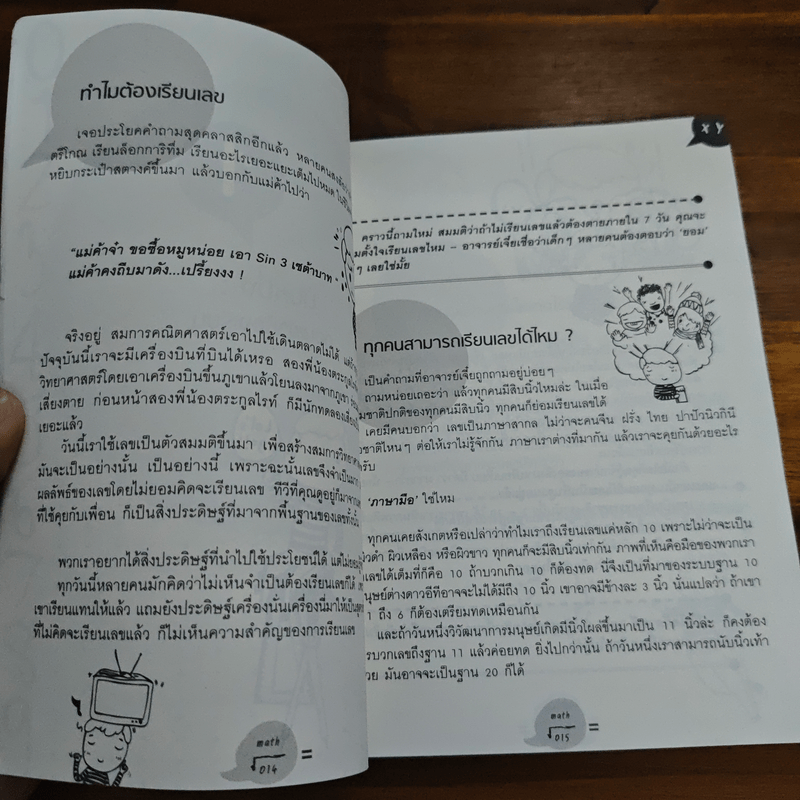 ทำไมต้องเรียนเลข
เจอประโยคคำถามสุดคลาสสิกอีกแล้ว หลายคน
ตรีโกณ เรียนล็อกการิทึ่ม เรียนอะไรเยอะแยะเต็มไปหมด
หยิบกระเป๋าสตางค์ขึ้นมา แล้วบอกกับแม่ค้าไปว่า
"แม่ค้าจ๋า ขอซื้อหมูหน่อย เอา Sin 3 เซต้าบาท"
แม่ค้าคงถีบมาดัง...เปรี้ยงงง !
จริงอยู่ สมการคณิตศาสตร์เอาไปใช้เดินตลาดไม่ได้
ปัจจุบันนี้เราจะมีเครื่องบินที่บินได้เหรอ สองพี่น้องตระกูลไรท์
วิทยาศาสตร์โดยเอาเครื่องบินขึ้นภูเขาแล้วโยนลงมาจากภูเขา
เสี่ยงตาย ก่อนหน้าสองพี่น้องตระกูลไรท์ ก็มีนักทดลอง
เยอะแล้ว
วันนี้เราใช้เลขเป็นตัวสมมติขึ้นมา เพื่อสร้างสมการวิทยา
มันจะเป็นอย่างนั้น เป็นอย่างนี้ เพราะฉะนั้นเลขจึงจำเป็น
ผลลัพธ์ของเลขโดยไม่ยอมคิดจะเรียนเลข ทีวีที่คุณดูอยู่ก็มาจาก
ที่ใช้คุยกับเพื่อน ก็เป็นสิ่งประดิษฐ์ที่มาจากพื้นฐานของเลขทั้งนั้น
พวกเราอยากได้สิ่งประดิษฐ์ที่นำไปใช้ประโยชน์ได้ แต่ไม่
ทุกวันนี้หลายคนมักคิดว่าไม่เห็นจำเป็นต้องเรียนเลขก็ได้
เขาเรียนแทนให้แล้ว แถมยังประดิษฐ์เครื่องนั่นเครื่องนี่มาให้
ที่ไม่คิดจะเรียนเลขแล้ว ก็ไม่เห็นความสำคัญของการเรียนเลข
math
014
=
X Y
คราวนี้ถามใหม่ สมมติว่าถ้าไม่เรียนเลขแล้วต้องตายภายใน 7 วัน คุณจะ
มตั้งใจเรียนเลขไหม – อาจารย์เจี๋ยเชื่อว่าเด็กๆ หลายคนต้องตอบว่า 'ยอม'
ๆ เลยใช่มั้ย
ทุกคนสามารถเรียนเลขได้ไหม ?
เป็นคำถามที่อาจารย์เจี๋ยถูกถามอยู่บ่อยๆ
ถามหน่อยเถอะว่า แล้วทุกคนมีสิบนิ้วไหมล่ะ ในเมื่อ
มชาติปกติของทุกคนมีสิบนิ้ว ทุกคนก็ย่อมเรียนเลขได้
เคยมีคนบอกว่า เลขเป็นภาษาสากล ไม่ว่าจะคนจีน ฝรั่ง ไทย ปาปัวนิวกินี
อชาติไหนๆ ต่อให้เราไม่รู้จักกัน ภาษาเราต่างที่มากัน แล้วเราจะคุยกันด้วยอะไร
รับ
'ภาษามือ' ใช่ไหม
ทุกคนเคยสังเกตหรือเปล่าว่าทำไมเราถึงเรียนเลขแค่หลัก 10 เพราะไม่ว่าจะเป็น
วดำ ผิวเหลือง หรือผิวขาว ทุกคนก็จะมีสิบนิ้วเท่ากัน ภาพที่เห็นคือมือของพวกเรา
เลขได้เต็มที่ก็คือ 10 ถ้าบวกเกิน 10 ก็ต้องทด นี่จึงเป็นที่มาของระบบฐาน 10
นุษย์ต่างดาวอีที่อาจจะไม่ได้มีถึง 10 นิ้ว เขาอาจมีข้างละ 3 นิ้ว นั่นแปลว่า ถ้าเขา
1 ถึง 6 ก็ต้องเตรียมทดเหมือนกัน
และถ้าวันหนึ่งวิวัฒนาการมนุษย์เกิดมีนิ้วโผล่ขึ้นมาเป็น 11 นิ้วล่ะ ก็คงต้อง
รบวกเลขถึงฐาน 11 แล้วค่อยทด ยิ่งไปกว่านั้น ถ้าวันหนึ่งเราสามารถนับนิ้วเท้า
วย มันอาจจะเป็นฐาน 20 ก็ได้
math
015
=